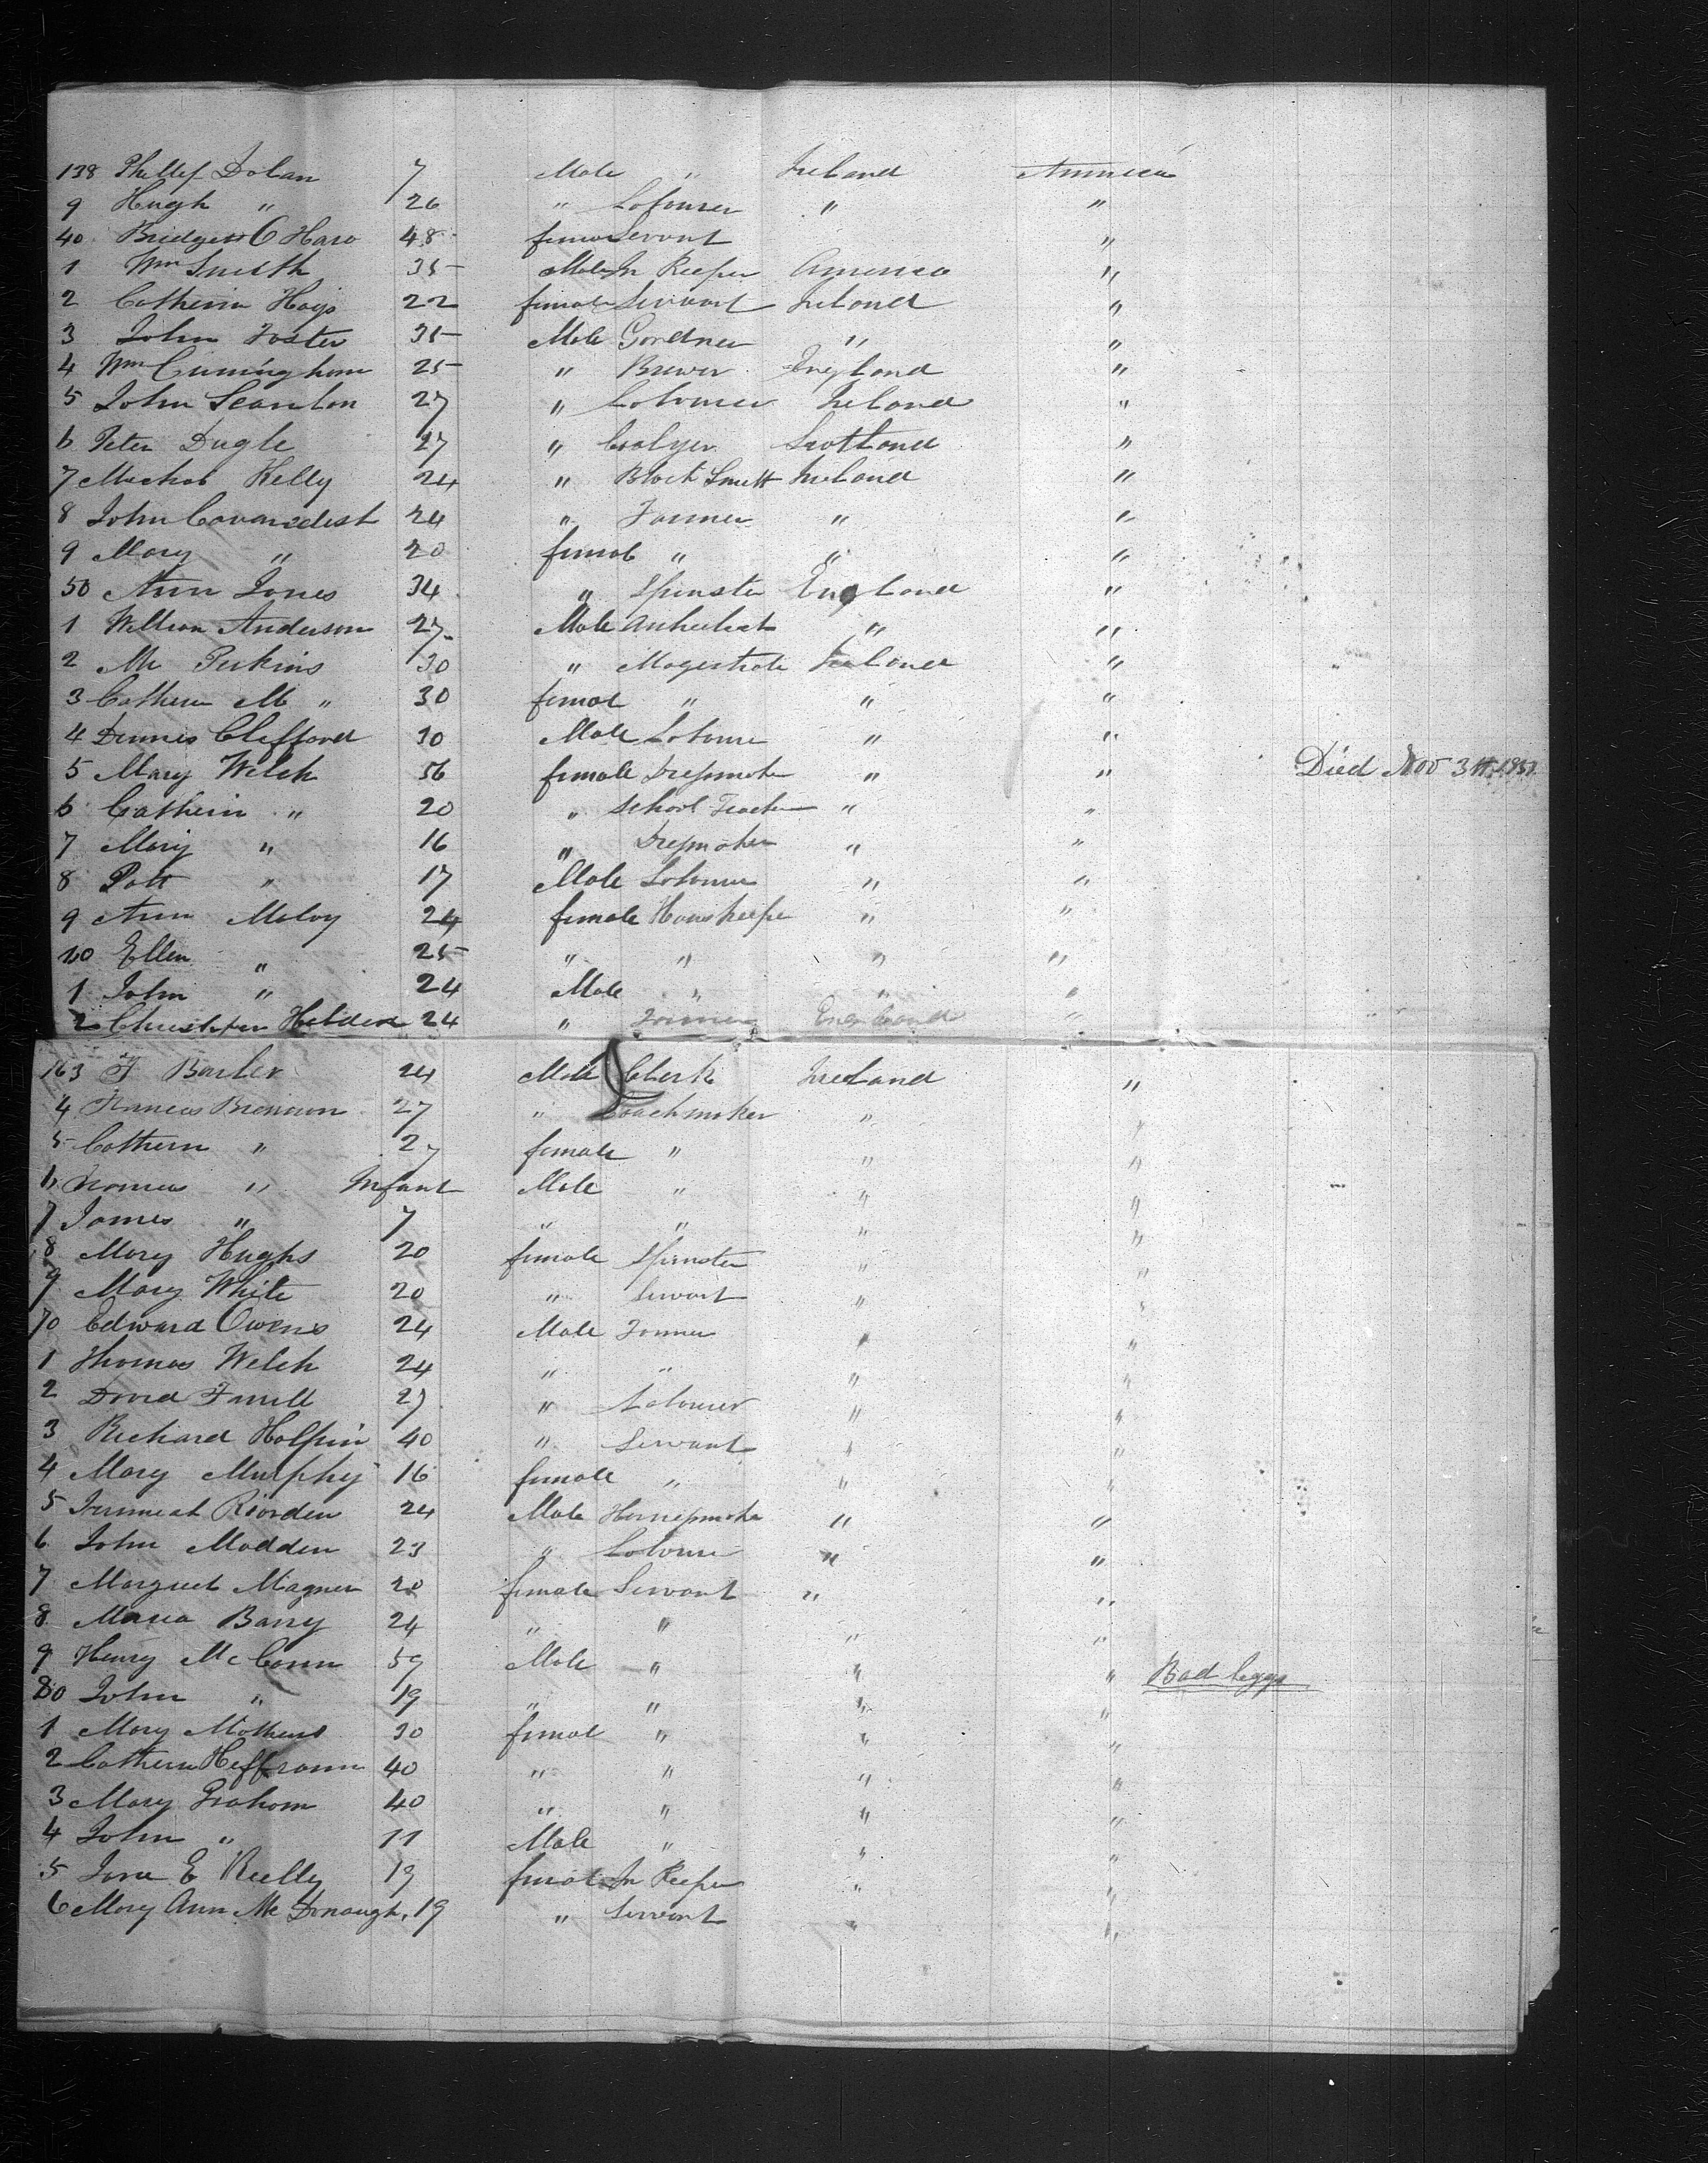 138 Phillep Dolan 7 Male " Ireland America
9 Hugh " 26 " Labourer " "
40 Bridget O Hara 48 female Servant "
1 Wm Smith 35 Male In Keeper America "
2 Catherin Hays 22 female Servant Ireland "
3 John Foster 35 Male Gardner " "
4 Wm Cuningham 25 " Brewer England "
5 John Scanlon 27 " Labourer Ireland "
6 Peter Dugle 27 " Coalyer Scotland "
7 Michal Kelly 24 " Black Smith Ireland "
8 John Cavanedish 24 " Farmer " "
9 Mary " 20 femal " " "
50 Ann Jones 34 " Spinster England "
1 William Anderson 27 Male " "
2 Mr Perkins 30 " Magestrate Ireland "
3 Cathern M " 30 femal " " "
4 Dennis Clifford 30 Male Laboure " "
5 Mary Welch 56 female Dressmaker " " Died Nov 3
6 Cathern " 20 " School Teacher " "
7 Mary " 16 " Dressmaker " "
8 Patt " 17 Male Labourer " "
9 Ann Maloy 24 female Houskeeper " "
10 Ellen " 25 " " " "
1 John " 24 Male " " "
2 Christopher 24 " Farmer England "
163 F 24 Male Clerk Ireland "
4 Frances Brennan 27 " Coachmaker " "
5 Cathern " 27 female " " "
6 Frances " Infant Male " " "
7 James " 7 " " " "
8 Mary Hughs 20 female Spinster " "
9 Mary White 20 " Servant " "
70 Edward Owens 24 Male Farmer " "
1 Thomas Welch 24 " " " "
2 David Farrell 27 " Labourer " "
3 Richard Halpin 40 " Servant " "
4 Mary Murphy 16 female " " "
5 Riorden 24 Male Harnessmaker " "
6 John Madden 23 " Laboure " "
7 Margret Magner 20 female Servant " "
8 Maria Barry 24 " " " "
9 Henry McCann 59 Male " " " Bad leggs
80 John " 19 " " " "
1 Mary Mathews 30 femal " " "
2 Cathern Heffrann 40 " " " "
3 Mary Graham 40 " " " "
4 John " 11 Male " " "
5 Jane E Reelly 19 femal In Keeper " "
6 Mary Ann Mc Donaugh, 19 " Servant " "